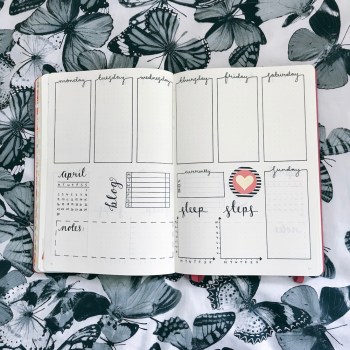 monday tuesday wednesday thursday friday saturday
april
blog
currently
sunday
sleep
steps
notes